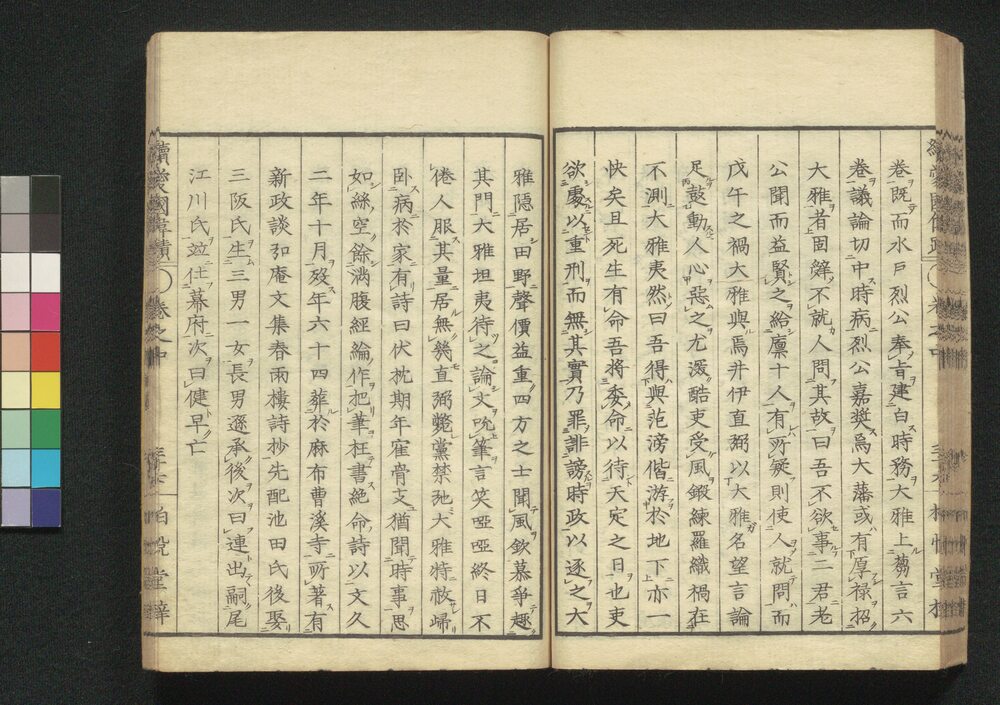 卷既而水戶烈公奉旨建白時務大雅上芻言六
卷議論切中時病烈公嘉奬焉大藩或有厚祿招
大雅者固辭不就人問其故曰吾不欲事二君老
公聞而益賢之給廩十人有所疑則使人就問而
戊午之禍大雅與焉井伊直弼以大雅名望言論
足鼓動人心惡之尤深酷吏受風鍛練羅織禍在
不測大雅夷然曰吾得與范滂偕游於地下亦一
快矣且死生有命吾將委命以待天定之日也吏
欲處以重刑而無其實乃罪誹謗時政以逐之大
雅隱居田野聲價益重四方之士聞風欽慕爭趣
其門大雅坦夷待之論文吮筆言笑啞啞終日不
倦人服其量居無幾直弼斃黨禁弛大雅特赦歸
臥病於家有詩曰伏枕期年寉骨支猶聞時事思
如絲空餘滿腹經綸作把筆枉書絕命詩以文久
二年十月歿年六十四葬於麻布曹溪寺所著有
新政談弘庵文集春雨樓詩抄先配池田氏後娶
三阪氏生三男一女長男遜承後次曰連出嗣尾
江川氏竝仕幕府次曰健早亡
續愛國偉績
卷之中